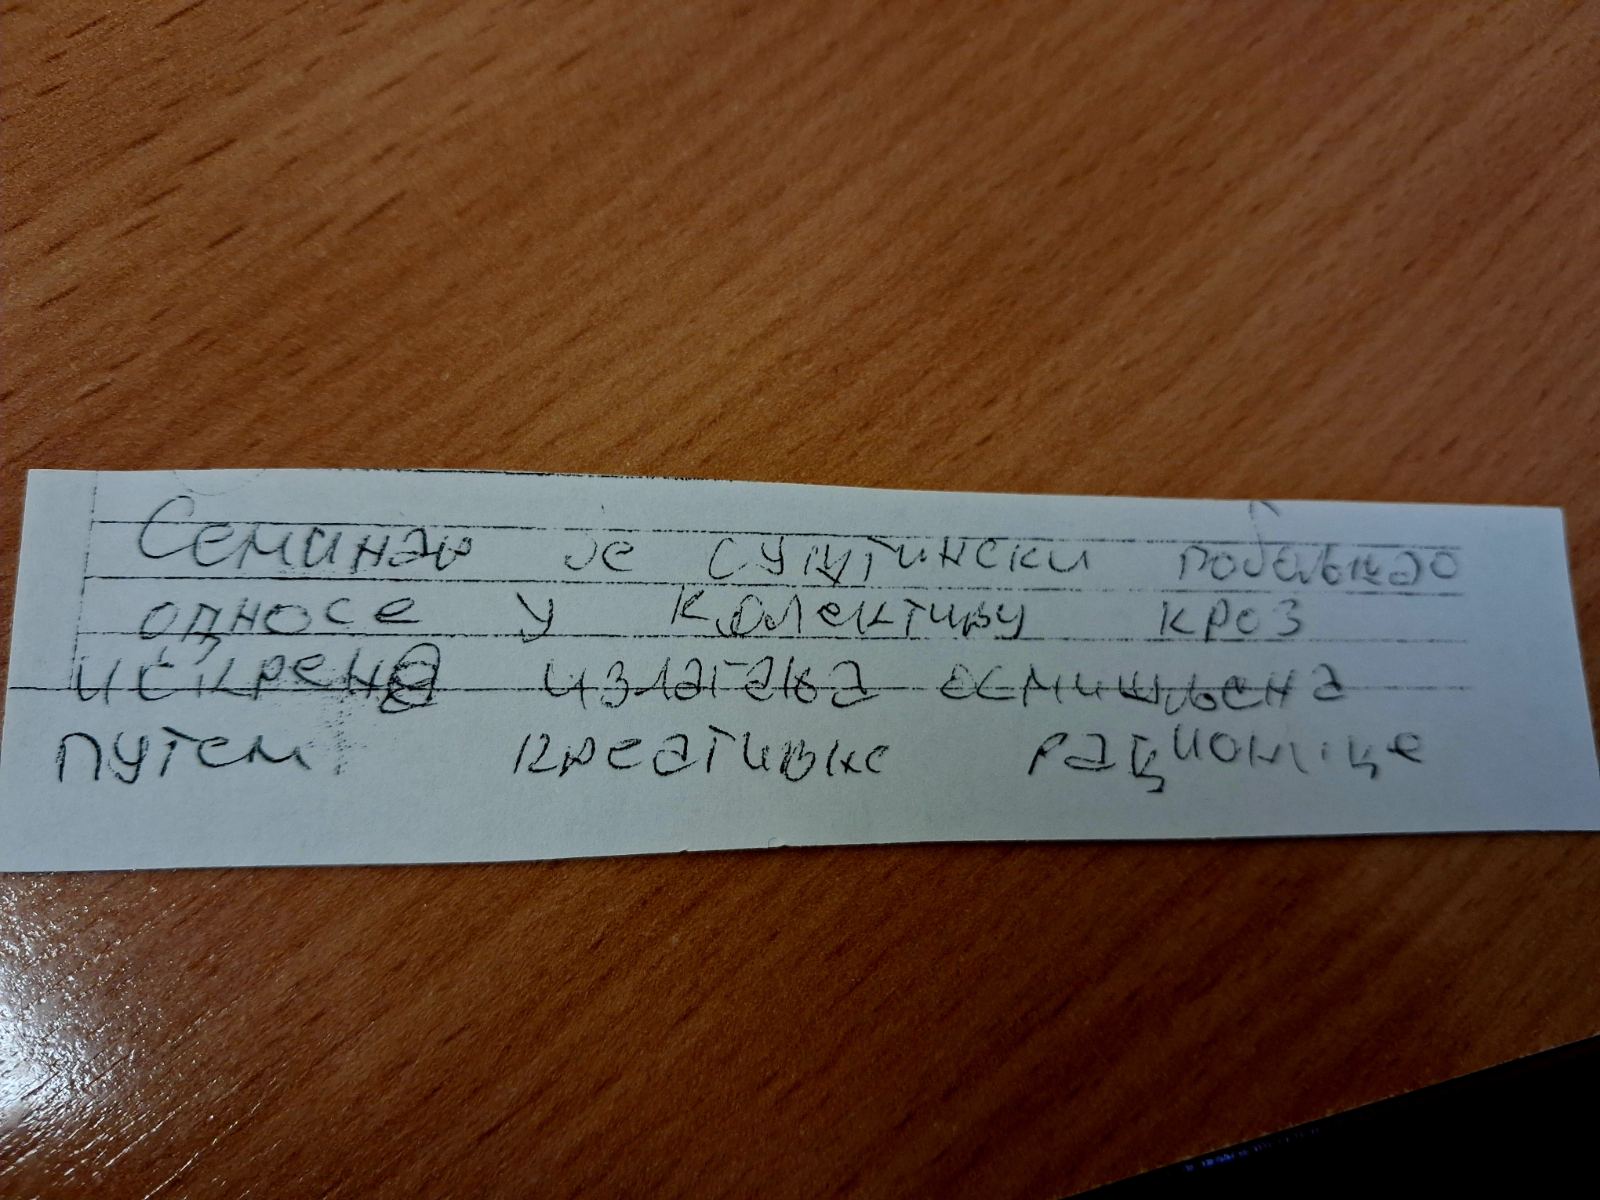 Семинар је суштински побољшао
односе у колективу кроз
искрена излагања осмишљена
путем креативне радионице